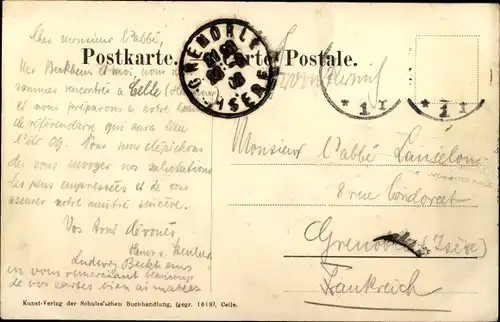 Cher monsieur l'abbé,
Postkarte. Carte Postale.
GRENOBLE
ISERE
Mr Beckhaus et moi, nous nous
sommes rencontrés à Celle
et nous préparons à notre
de référendaire qui aura lieu
l'été 09. Nous nous dépêchons
de vous envoyer nos salutations
les plus empressées et de vous
assurer notre amitié sincère.
Vos amis dévoués,
Hans v.
Ludwig Beckhaus
en vous remerciant beaucoup
de vos cartes bien aimables
* 1 I
* 1 *
Monsieur l'abbé Lancelon
8 rue Condorcet
Grenoble (Isère)
Frankreich
Kunst-Verlag der Schulze'schen Buchhandlung, (gegr. 1618), Celle.